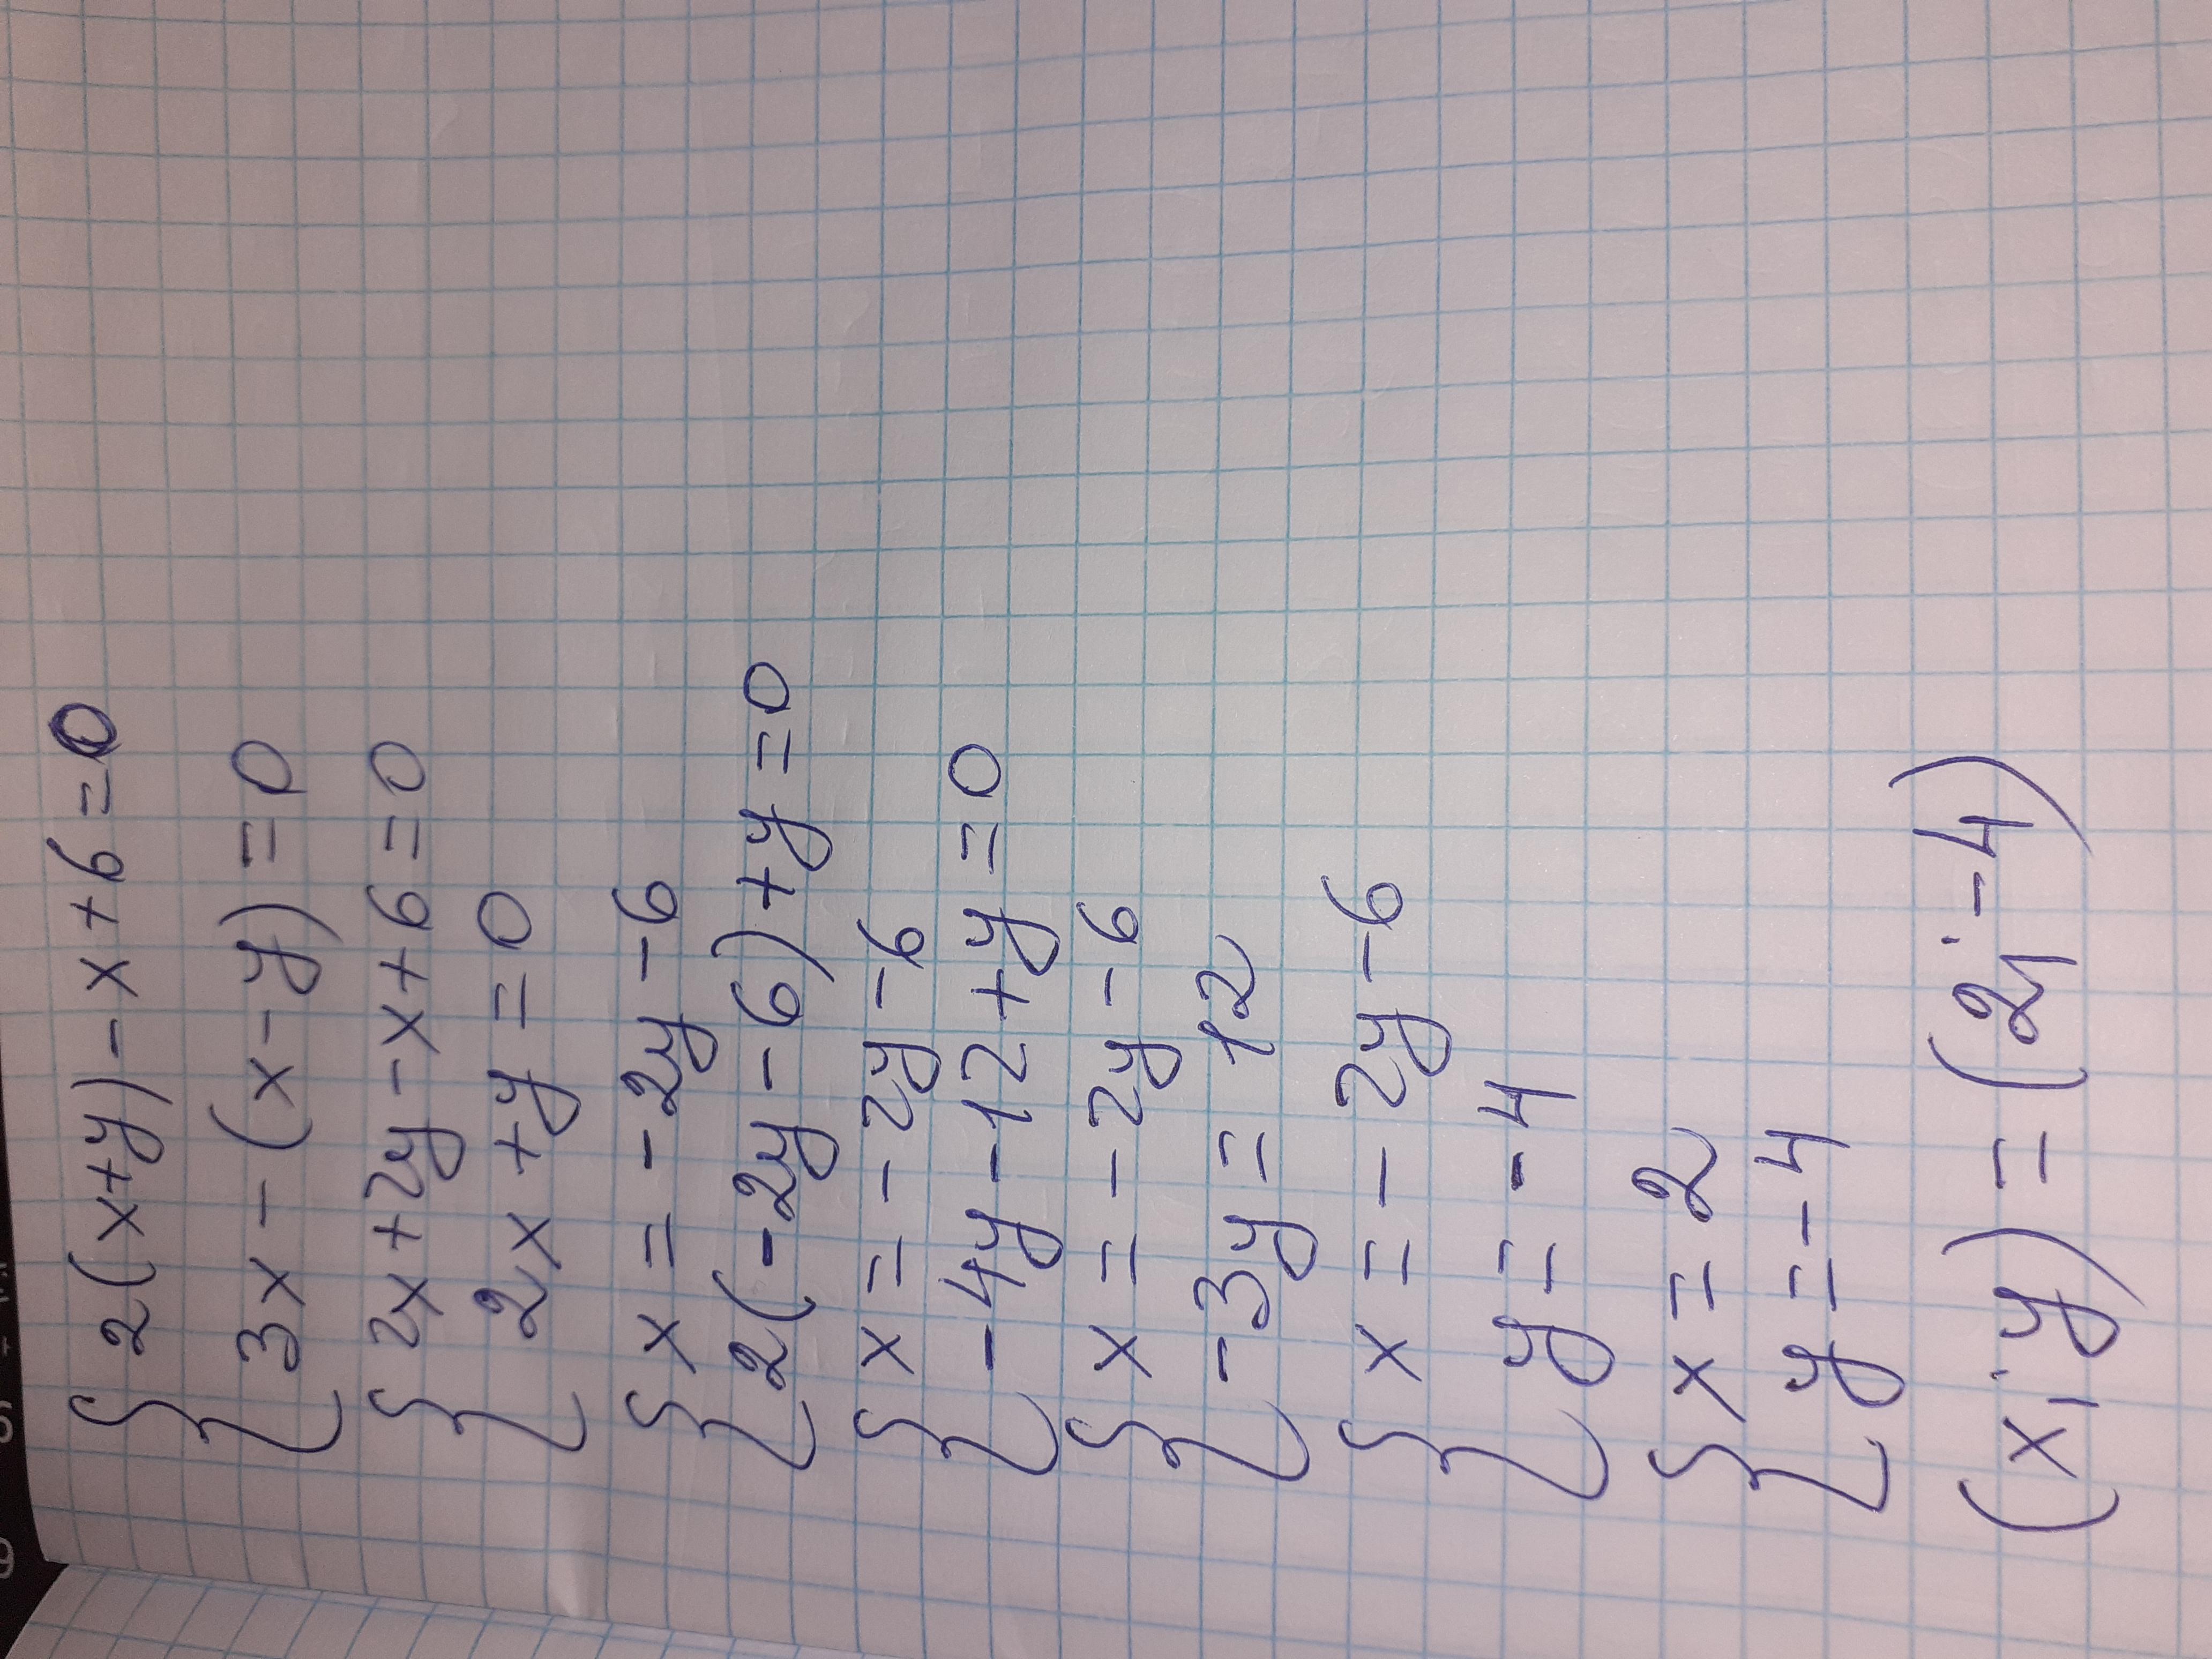 { 2(x+y)-x+6=0
3x-(x-y)=0
{ 2x+2y-x+6=0
2x+y=0
{ x=-2y-6
2(-2y-6)+y=0
{ x=-2y-6
-4y-12+y=0
{ x=-2y-6
-3y=12
{ x=-2y-6
y=-4
{ x=2
y=-4
(x;y)=(2;-4)